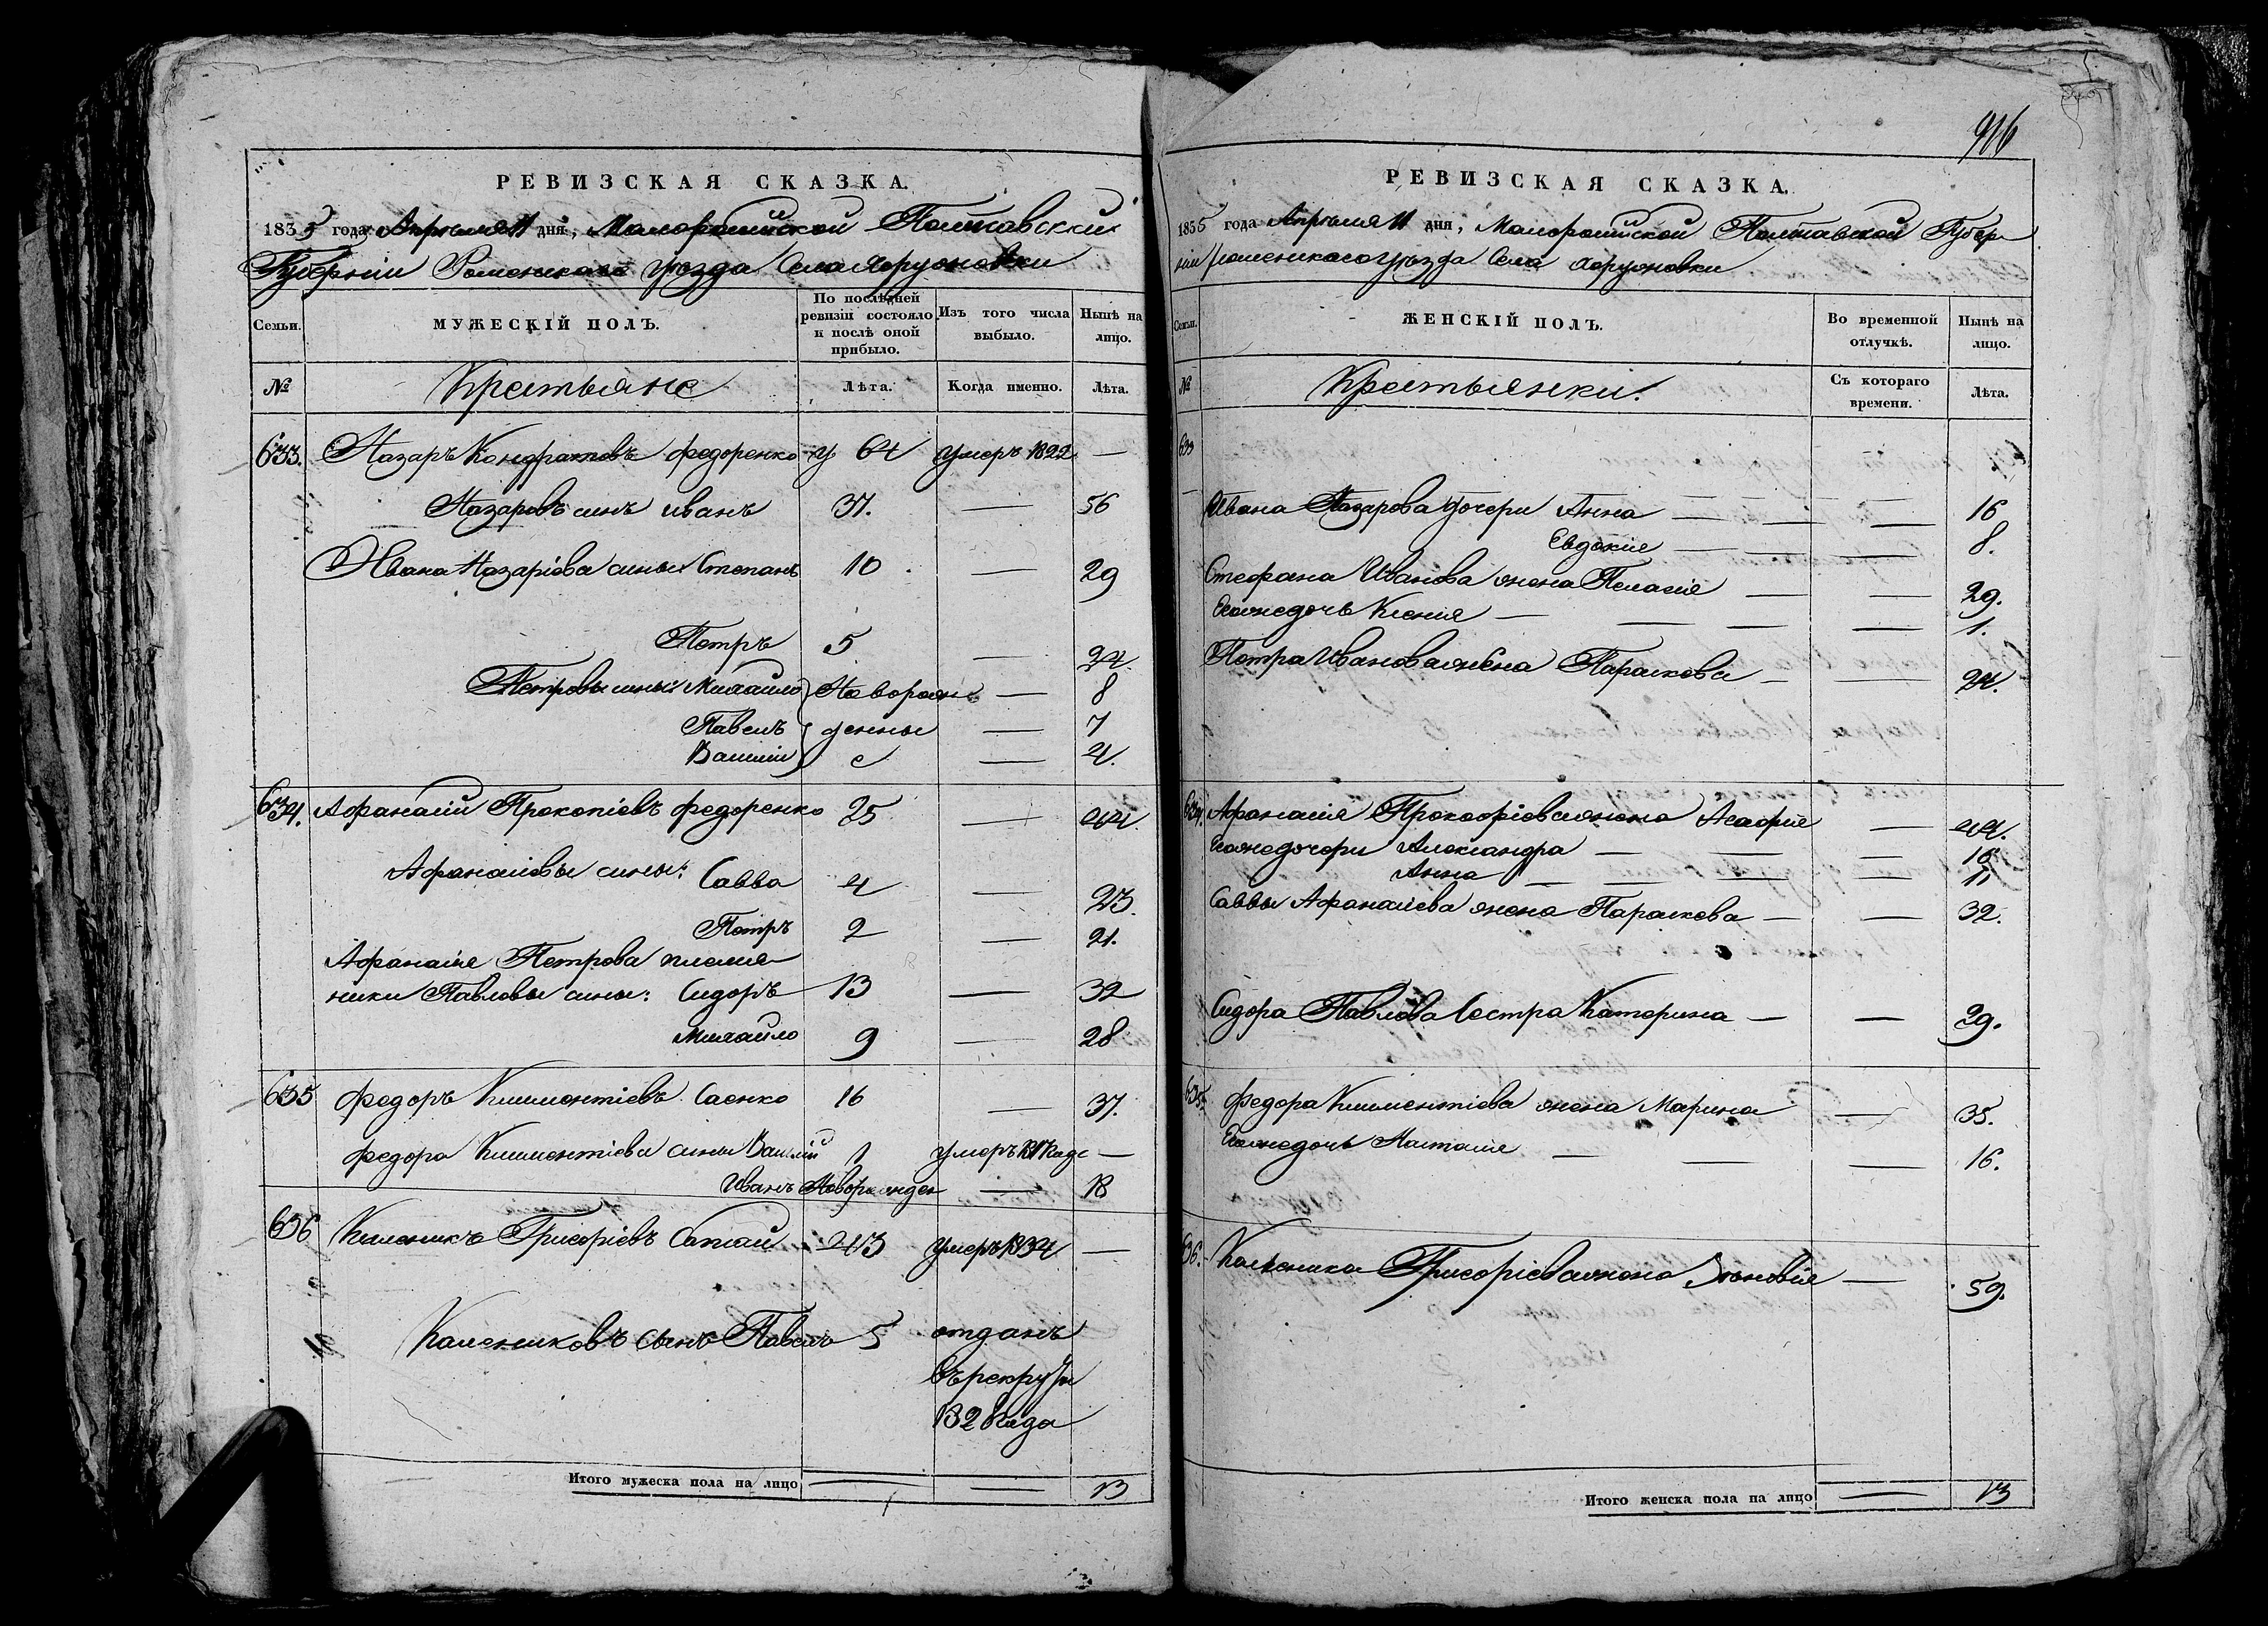 РЕВИЗСКАЯ СКАЗКА.
1835 года Апреля 11 дня, Малороссійской Полтавской
Губерніи Роменскаго уезда Села
Семьи.
МУЖЕСКІЙ ПОЛЪ.
По последней ревизіи состояло и послѣ оной прибыло.
Изъ того числа выбыло.
Нынѣ на лицо.
№
Крестьяне
Лѣта.
Когда именно.
Лѣта.
633. Назаръ Кондратовъ Федоренко 64 умеръ 1822 —
Назаровъ синъ Иванъ 37. — 56
Ивана Назаріева сины: Степанъ 10 — 29
Петръ 5 — 24.
Петровы сины: Михайло Новорож — 8
Павелъ денны — 7
Василій е — 4.
634. Афанасій Прокопіевъ Федоренко 25 — 44.
Афанасіевы сины: Савва 4 — 23.
Петръ 2 — 21.
Афанасія Петрова племян
ники Павловы сины: Сидоръ 13 — 32
Михайло 9 — 28
635 Федоръ Климентіевъ Саенко 16 — 37.
Федора Климентіева сины Василій 1 умеръ 1817 года —
Иванъ Новорожден — 18
636 Каленикъ Григоріевъ 43 умеръ 1834 —
Калениковъ сынъ Павелъ 5 отданъ
въ рекруты
1828 года
Итого мужеска пола на лицо — — 13
916
РЕВИЗСКАЯ СКАЗКА.
1835 года Апреля 11 дня, Малороссійской Полтавской Губер
ніи Роменскаго уезда Села
Семьи.
ЖЕНСКІЙ ПОЛЪ.
Во временной отлучкѣ.
Нынѣ на лицо.
№
Крестьянки.
Съ котораго времени.
Лѣта.
633
Ивана Назарова дочери Анна — — — 16
Евдокия — — — 8.
Стефана Иванова жена Пелагія — — 29.
Ееже дочь Ксения — — — — 1.
Петра Иванова жена Параскева — — 24.
634. Афанасія Прокофіева жена Агафія — 44.
Ееже дочери Александра — — — 16
Анна — — — — 11
Саввы Афанасіева жена Параскева — — 32.
Сидора Павлова Сестра Катерина — — 29.
635. Федора Климентіева жена Марина — 35.
Ееже дочь Настасія — — — 16.
636. Каленика Григоріева жена Зеновія — 59.
Итого женска пола на лицо — 13